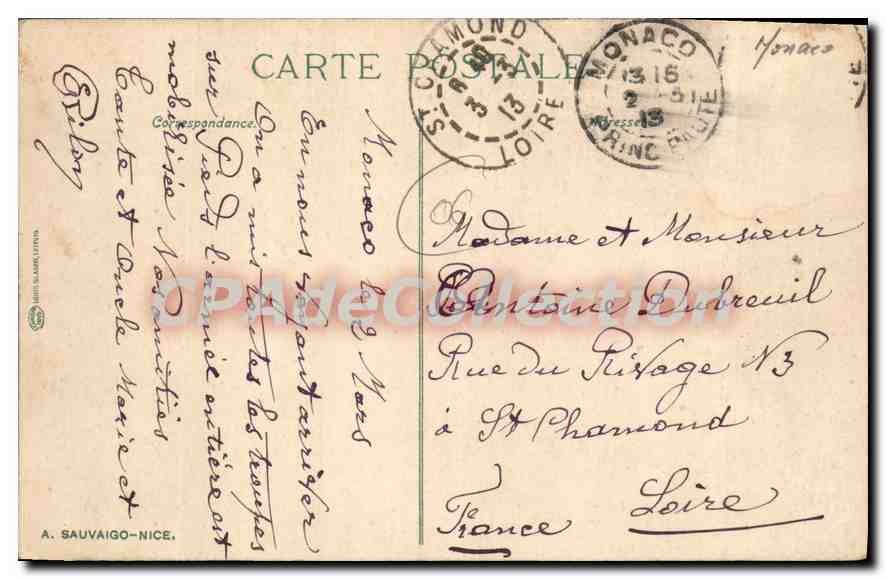 CARTE POSTALE
Correspondance.
Adresse
ST CHAMOND
LOIRE
3 13
MONACO
13 15
2 - 3
13
PRINC PAUTE
Monaco
Monaco le 2 Mars
En nous voyant arriver
On a mis toutes les troupes
sur Pieds l'armée entière est
mobilisée. Nos amitiés
Tante et Oncle Marie et
Madame et Monsieur
Antoine Dubreuil
Rue du Rivage N 3
à St Chamond
Loire
France
A. SAUVAIGO-NICE.
CPAdeCollection